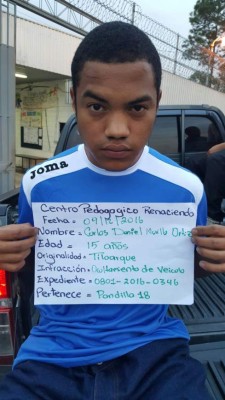 joma
Centro Pedagogico Renaciendo
Fecha = 04/12/2016
Nombre = Carlos Daniel Murillo Ortiz
Edad = 15 años
Originalidad = Tiloarque
Infracción = Quillamiento de Vehiculo
Expediente = 0801-2016-0346
Pertenece = Pandilla 18